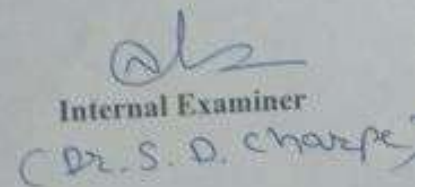 Internal Examiner
(Dr. S. D. Charpe)